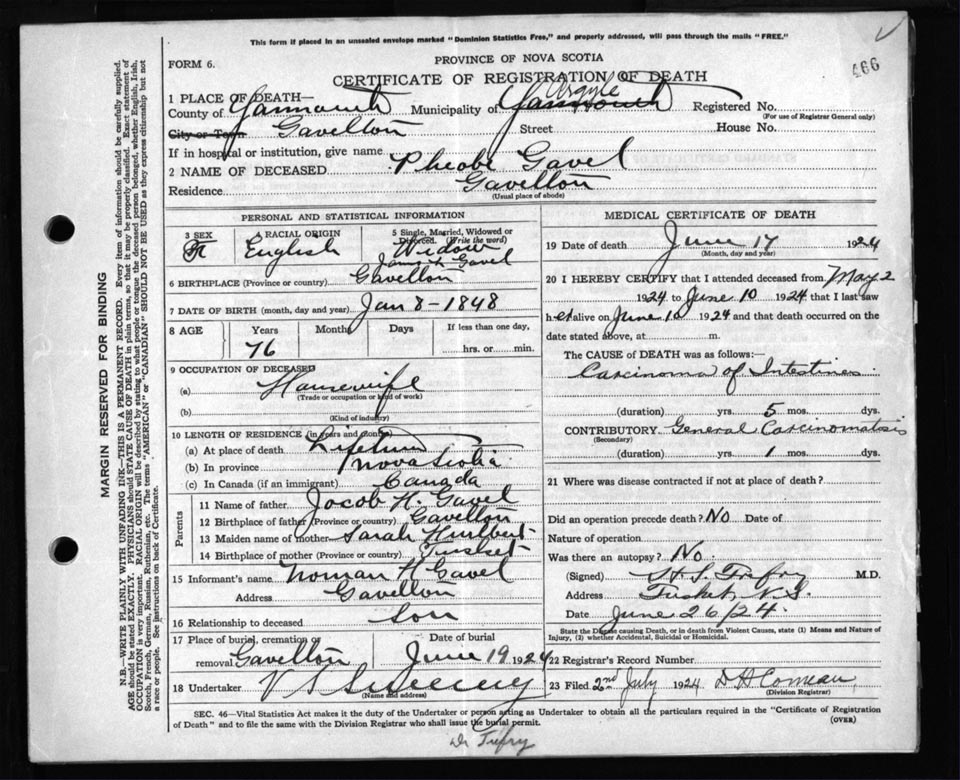 This form if placed in an unsealed envelope marked "Dominion Statistics Free," and properly addressed, will pass through the mails "FREE."
466
FORM 6.
PROVINCE OF NOVA SCOTIA
CERTIFICATE OF REGISTRATION OF DEATH
1 PLACE OF DEATH—
Argyle
County of Yarmouth Municipality of Yarmouth Registered No.
(For use of Registrar General only)
City or Town Gavelton Street House No.
If in hospital or institution, give name
2 NAME OF DECEASED Pheobe Gavel
Residence Gavelton
(Usual place of abode)
PERSONAL AND STATISTICAL INFORMATION
3 SEX 4 RACIAL ORIGIN 5 Single, Married, Widowed or Divorced. (Write the word)
F English Widow
Gavel
6 BIRTHPLACE (Province or country) Gavelton
7 DATE OF BIRTH (month, day and year) Jan 8-1848
8 AGE Years Months Days If less than one day,
76 hrs. or min.
9 OCCUPATION OF DECEASED
(a) Housewife
(Trade or occupation or kind of work)
(b)
(Kind of industry)
10 LENGTH OF RESIDENCE (in years and months)
(a) At place of death Lifetime
(b) In province Nova Scotia
(c) In Canada (if an immigrant) Canada
Parents
11 Name of father Jacob H. Gavel
12 Birthplace of father (Province or country) Gavelton
13 Maiden name of mother Sarah Hurlbert
14 Birthplace of mother (Province or country) Tusket
15 Informant's name Norman H Gavel
Address Gavelton
16 Relationship to deceased Son
17 Place of burial, cremation or removal Gavelton Date of burial June 19 1924
18 Undertaker V S Sweeney
(Name and address)
MEDICAL CERTIFICATE OF DEATH
19 Date of death June 17 1924
(Month, day and year)
20 I HEREBY CERTIFY that I attended deceased from May 2
1924 to June 10 1924 that I last saw
her alive on June 10 1924 and that death occurred on the
date stated above, at m.
The CAUSE OF DEATH was as follows:—
Carcinoma of Intestines
(duration) yrs. 5 mos. dys.
CONTRIBUTORY General Carcinomatosis
(Secondary)
(duration) yrs. 1 mos. dys.
21 Where was disease contracted if not at place of death?
Did an operation precede death? No Date of
Nature of operation
Was there an autopsy? No
(Signed) H. S. Trefry M.D.
Address Tusket, N.S.
Date June 26/24.
State the Disease causing Death, or in death from Violent Causes, state (1) Means and Nature of
Injury, (2) whether Accidental, Suicidal or Homicidal.
22 Registrar's Record Number
23 Filed 2nd July 1924 D H Comeau
(Division Registrar)
SEC. 46—Vital Statistics Act makes it the duty of the Undertaker or person acting as Undertaker to obtain all the particulars required in the "Certificate of Registration
of Death" and to file the same with the Division Registrar who shall issue the burial permit.
(OVER)
Dr Trefry
MARGIN RESERVED FOR BINDING
N.B.—WRITE PLAINLY WITH UNFADING INK—THIS IS A PERMANENT RECORD. Every item of information should be carefully supplied.
AGE should be stated EXACTLY. PHYSICIANS should STATE CAUSE OF DEATH in plain terms, so that it may be properly classified. Exact statement of
OCCUPATION is very important. RACIAL ORIGIN will be described by stating to what people or tongue the deceased person belonged, whether English, Irish,
Scotch, French, German, Russian, Ruthenian, etc. The terms "AMERICAN" or "CANADIAN" SHOULD NOT BE USED as they express citizenship but not
a race or people. See instructions on back of Certificate.